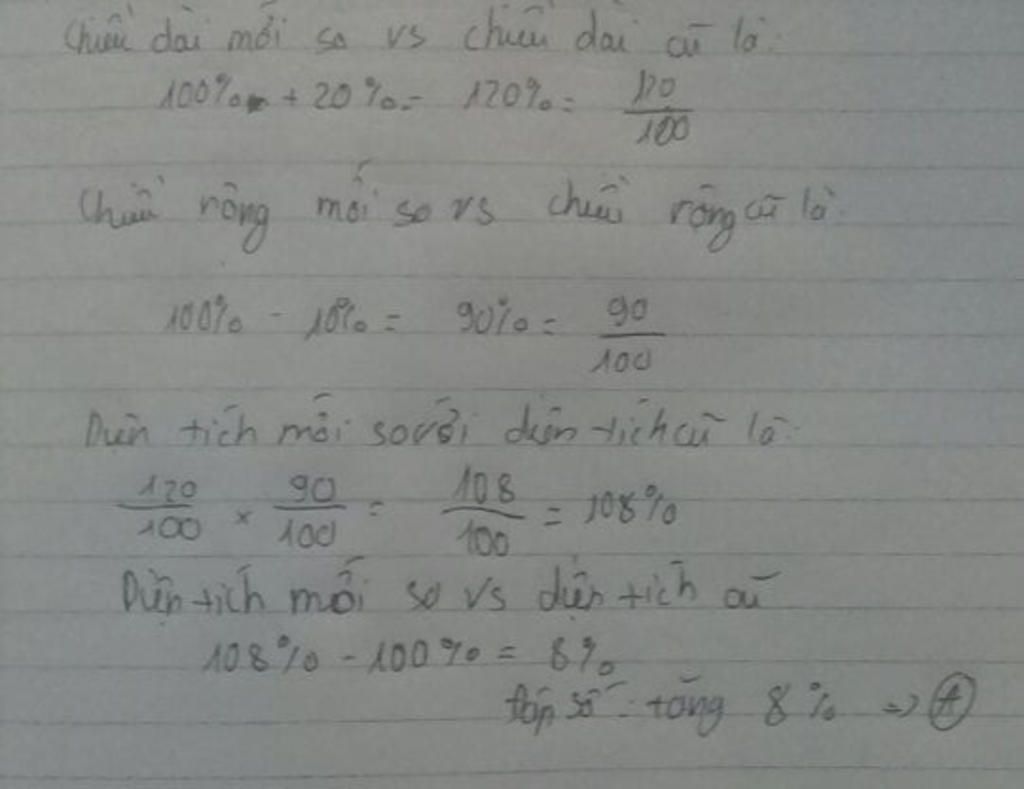 Chiều dài mới so vs chiều dài cũ là:
100% + 20% = 120% = 120/100
Chiều rộng mới so vs chiều rộng cũ là:
100% - 10% = 90% = 90/100
Diện tích mới so với diện tích cũ là:
120/100 × 90/100 = 108/100 = 108%
Diện tích mới so vs diện tích cũ
108% - 100% = 8%
Đáp số: tăng 8% => A